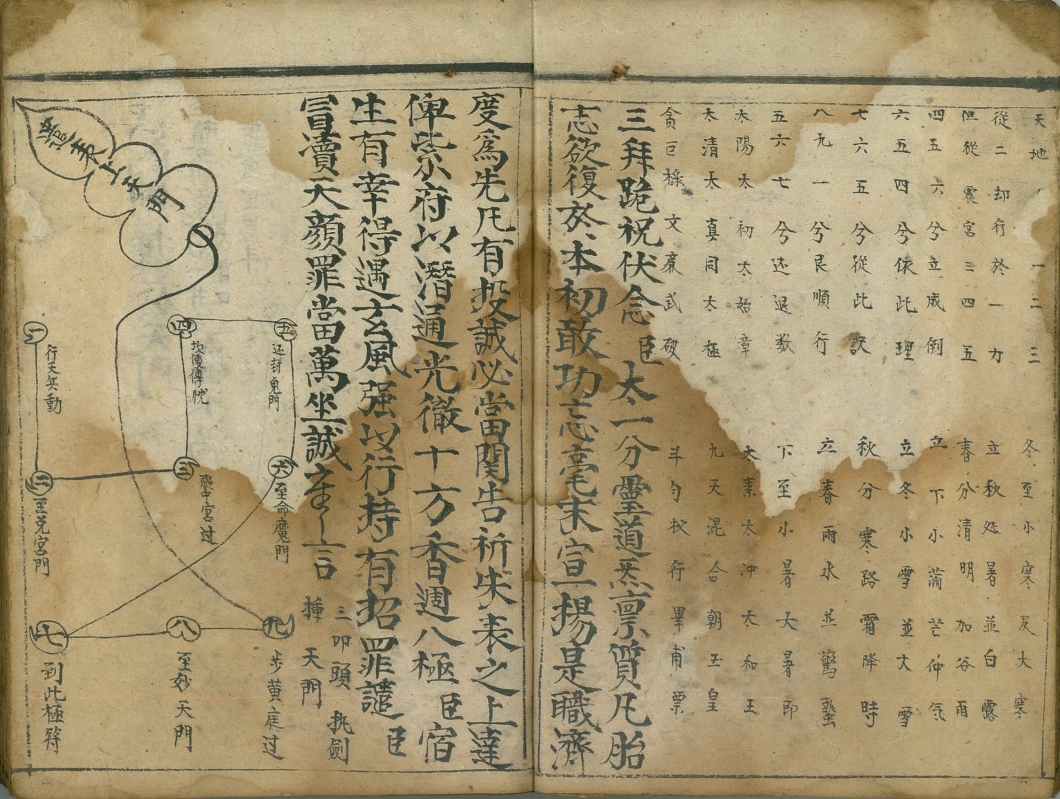 天地 一二三 冬至小寒及大寒
從二却行於一方 立秋処暑並白露
但從震宮三四五 春分清明加谷雨
四五六兮立成倒 立下小蒲芒仲氕
六五四兮依此理 立冬小雪並大雪
七六五兮從此訣 秋分寒路霜降時
八九一兮艮順行 立春雨水並驚蟄
五六七兮述退数 下至小暑大暑即
太陽太初太始章 太素太冲太和王
太清太真同太極 九天混合朝玉皇
貪巨祿文亷武破 斗勺杦行畢甫票
三拜跪祝伏念臣太一分靈道炁禀質凡胎
志欲復於本初敢功忘毫末宣揚是職濟
度爲先凡有投誠必當関告祈朱表之上達
俾紫府以潛通光徹十方香週八極臣宿
生有幸得遇玄風强以行持有招罪譴臣
冒瀆天顔罪當萬坐誠 言 三叩頭执劍
揮天門
遣表上天門
五
还封鬼門
四
坎使傳忱
一
行天兵動
六
至命魔門
三
飛中宮过
二
至兌宮門
九
步黄庭过
八
至妙天門
七
到此極階